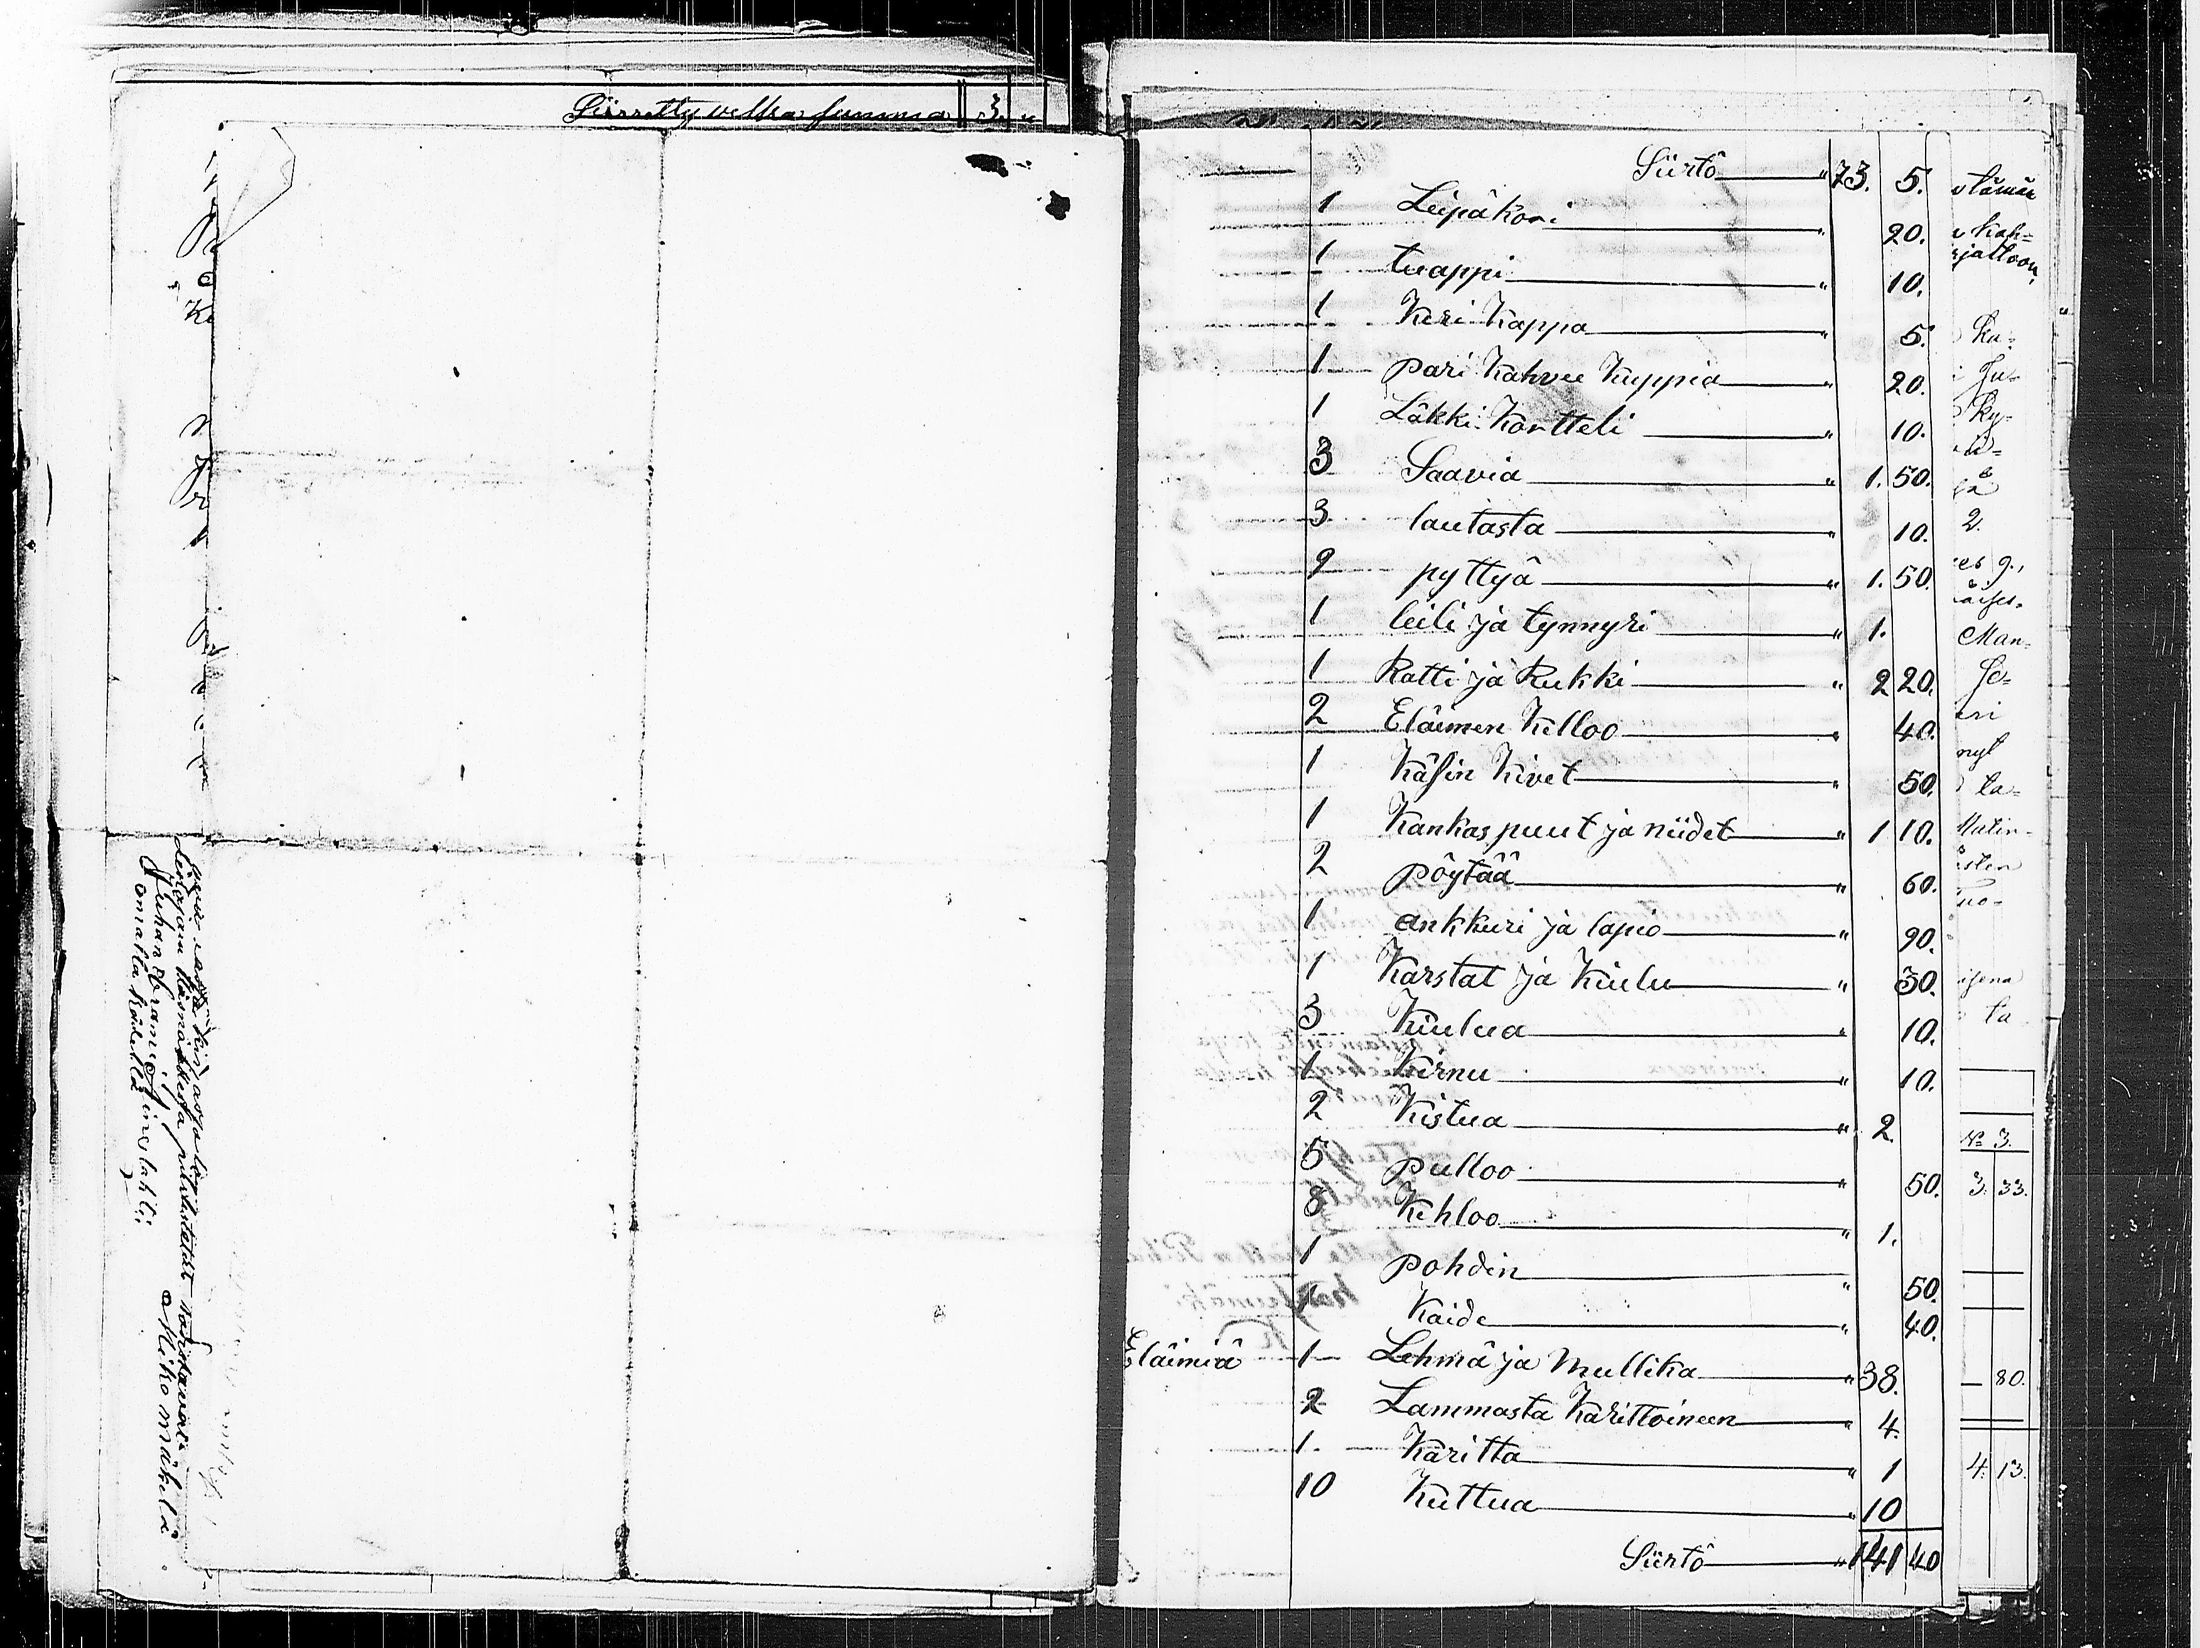 Siirretty velka summa 3
Juhan Abraminp.
omalla kädellä
Miko mäkelä
Siirtö " 73. 5.
1 Leipäkori " 20.
1 tuappi " 10.
1 Keri Kappa " 5.
1 pari Kahvee Kuppia " 20.
1 Läkki Kortteli " 10.
3 Saavia " 1. 50.
3 lautasta " 10.
9 pyttyä " 1. 50.
1 leili ja tynnyri " 1.
1 Ratti ja Rukki " 2 20.
2 Eläimen Kelloo " 40.
1 Käsin Kivet " 50.
1 Kankas puut ja niidet " 1 10.
2 pöytää " 60.
1 ankkuri ja lapio " 90.
1 Karstat ja Kiulu " 30.
3 Kiulua " 10.
1 Kirnu " 10.
2 Kistua " 2.
5 pulloo " 50.
8 Kehloo " 1.
1 pohdin " 50.
1 Kaide " 40.
Eläimiä 1 Lehmä ja Mullika " 38.
2 Lammasta Karittoineen " 4.
1 Karitta " 1
10 Kuttua " 10
Siirtö " 141 40
tämän
kah=
jattoon,
Ka=
Ju=
Ky=
2.
Man=
Jo=
ta=
Matin=
ta
No 3.
3. 33.
— 80.
4. 13.